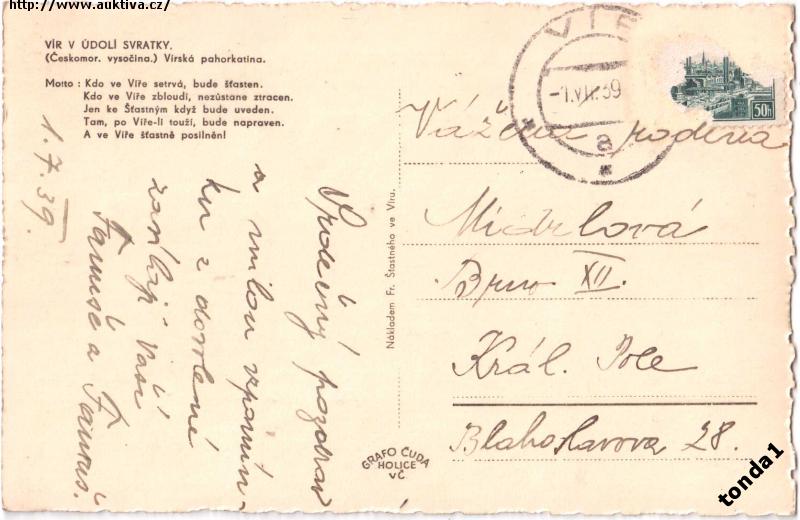 http://www.auktiva.cz/
VÍR V ÚDOLÍ SVRATKY.
(Českomor. vysočina.) Vírská pahorkatina.
Motto : Kdo ve Víře setrvá, bude šťasten.
Kdo ve Víře zbloudí, nezůstane ztracen.
Jen ke Šťastným když bude uveden.
Tam, po Víře-li touží, bude napraven.
A ve Víře šťastně posilněn!
1. 7. 39.
Srdečný pozdrav
a milou vzpomín-
ku z dovolené
zasílají Vaši
a
Nákladem Fr. Šťastného ve Víru.
GRAFO ČUDA
HOLICE
VČ.
VÍR
-1.VII.39
a
50h
Vážená rodina
Brno XII.
Král. Pole
Blahoslavova 28.
tonda1